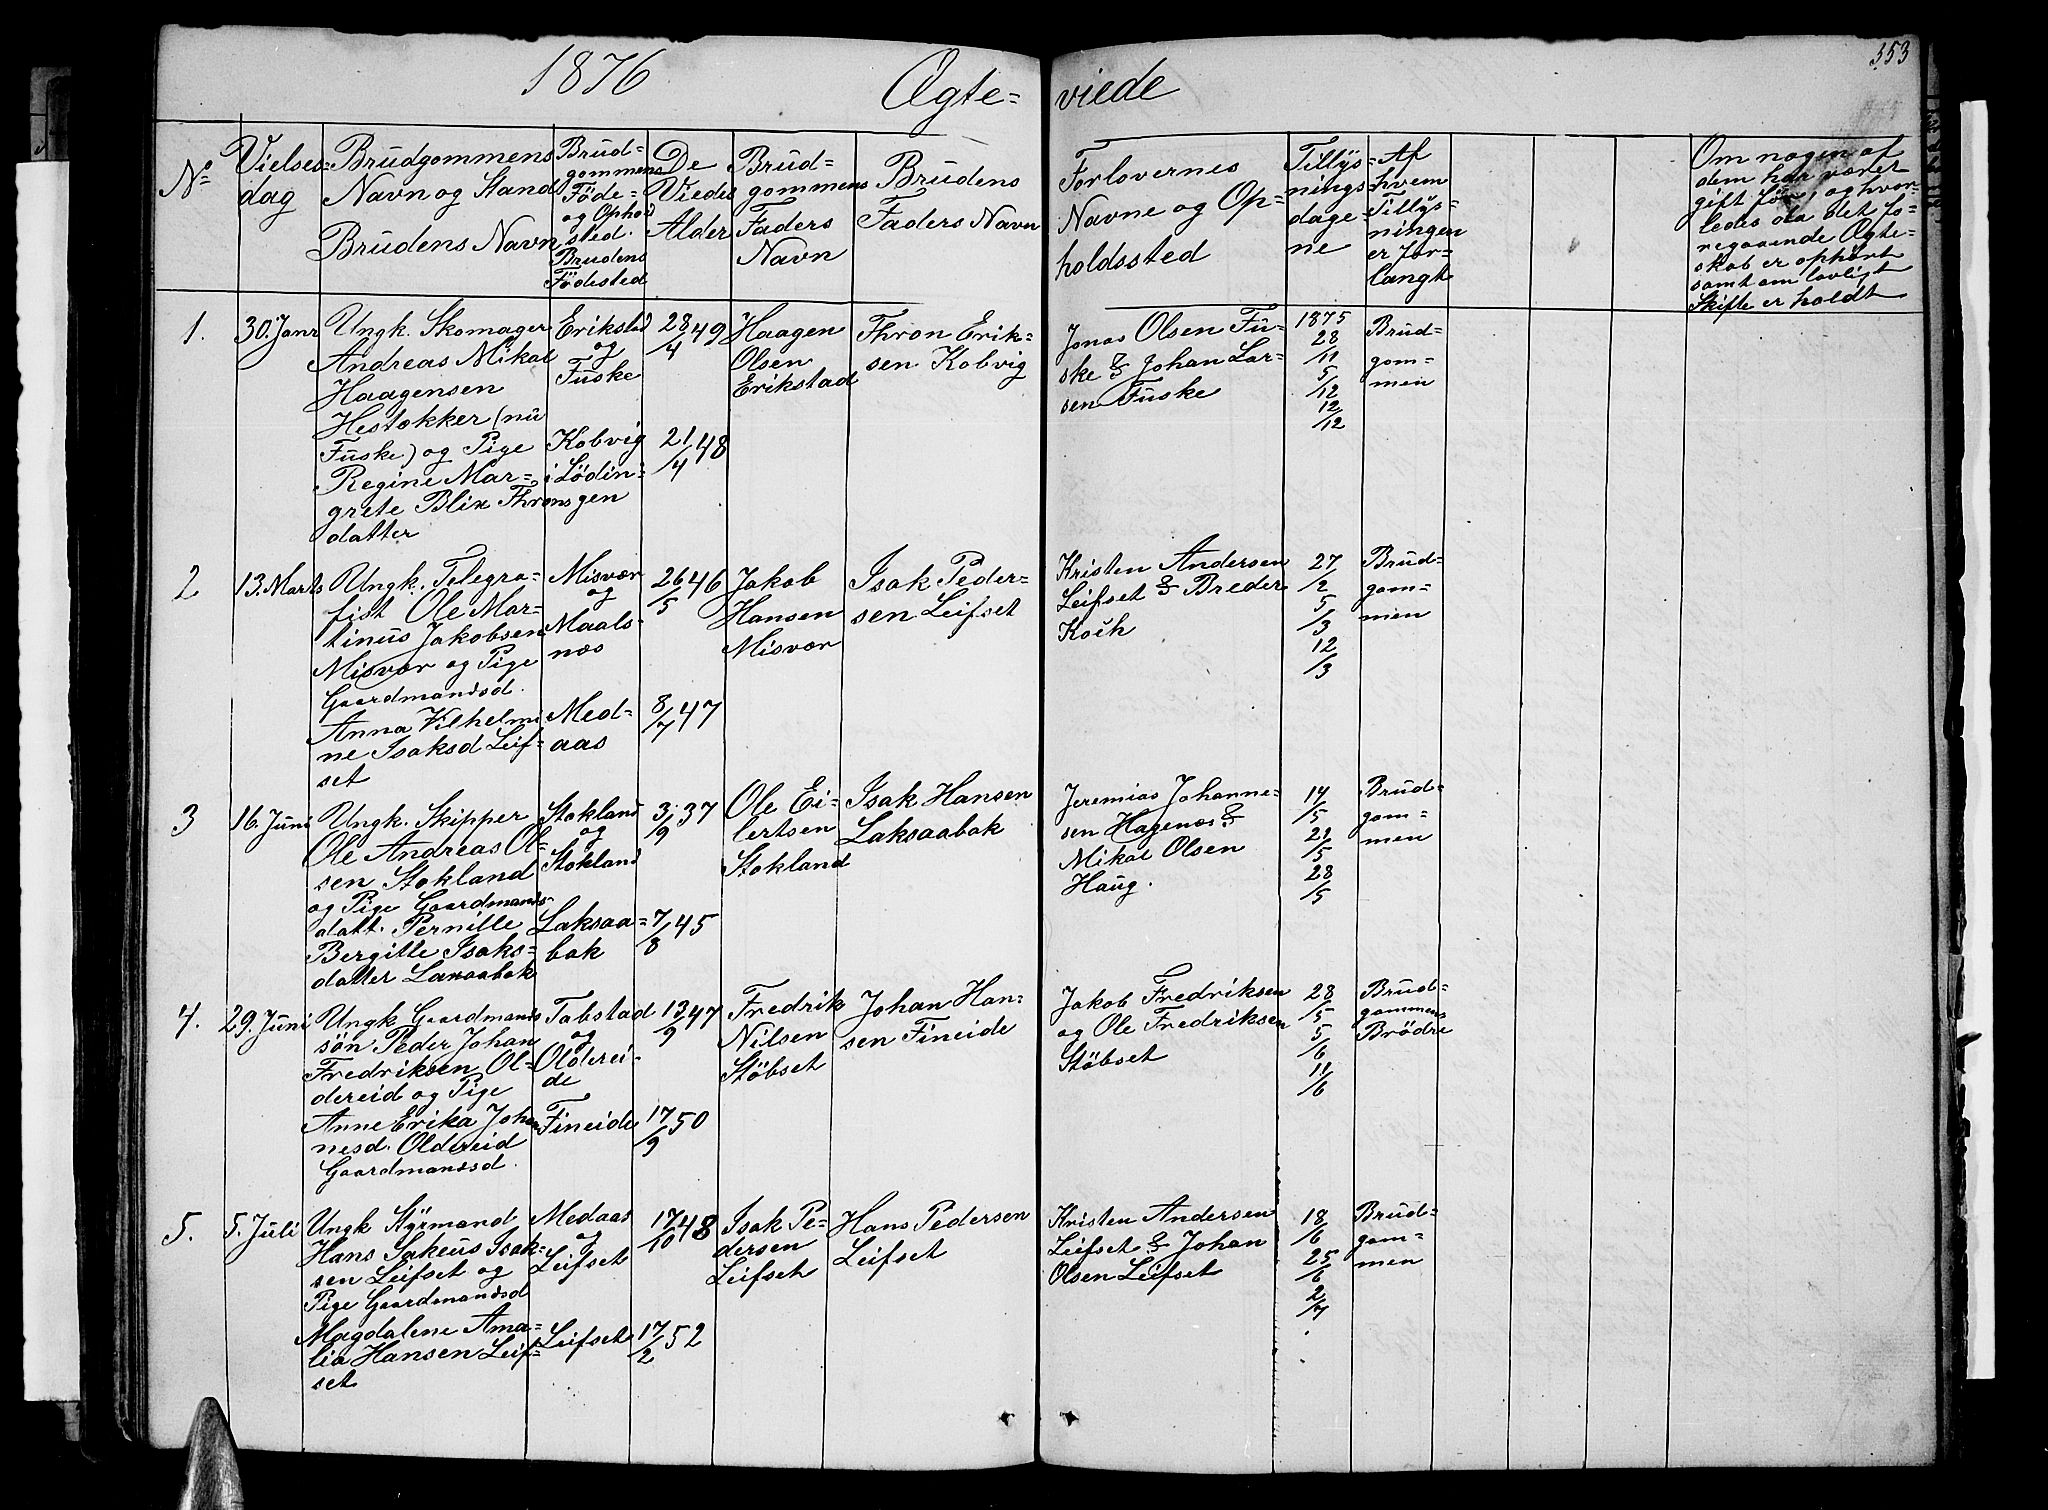 1876
Ægte=
viede
353
No
Vielses=
dag
Brudgommens
Navn og Stand
Brudens Navn
Brud=
gommens
Föde=
og Ophol
sted.
Brudens
Födested
De
Viedes
Alder
Brud=
gommens
Faders
Navn
Brudens
Faders Navn
Forlovernes
Navne og Op=
holdssted
Tillys=
nings
dage
ne
Af
hvem
Tillys=
ningen
er for=
langt
Om nogen af
dem har været
gift før, og hvor=
ledes da det fo=
regaaende Ægte=
skab er ophørt
samt om lovligt
Skifte er holdt
1.
30. Janr
Ungk. Skomager
Andreas Mikal
Haagensen
Hestøkker (nu
Fuske) og Pige
Regine Mar=
grete Blix Throns
datter
Erikstad
og
Fuske
Kobvig
i Lödin=
gen
28/4 49
21/4 48
Haagen
Olsen
Erikstad
Thron Erik=
sen Kobvig
Jonas Olsen Fu=
ske & Johan Lar=
sen Fuske
1875
28/11
5/12
12/12
Brud=
gom=
men
2
13. Marts
Ungk. Telegra=
fist Ole Mar=
tinus Jakobsen
Misvær og Pige
Gaardmandsd.
Anna Vilhelmi
ne Isaksd Leif=
set
Misvær
og
Maals=
næs
Med=
aas
26/5 46
8/7 47
Jakob
Hansen
Misvær
Isak Peder=
sen Leifset
Kristen Andersen
Leifset & Breder
Koch
27/2
5/3
12/3
Brud=
gom=
men
3
16. Juni
Ungk. Skipper
Ole Andreas Ol=
sen Stokland
og Pige Gaardmands=
datt. Pernille
Bergitte Isaks=
datter Laxaabak
Stokland
og
Stokland
Laksaa=
bak
3/9 37
7/8 45
Ole Ei=
lertsen
Stokland
Isak Hansen
Laksaabak
Jeremias Johanne=
sen Hagenæs &
Mikal Olsen
Haug.
14/5
21/5
28/5
Brud=
gom=
men
4.
29. Juni
Ungk Gaardmands
søn Peder Johan
Fredriksen Ol=
dereid og Pige
Anne Erika Johan
nesd. Oldereid
Gaardmandsd.
Tabstad
og
Olderei=
de
Fineide
13/9 47
17/9 50
Fredrik
Nilsen
Stöbset
Johan Han=
sen Fineide
Jakob Fredriksen
og Ole Fredriksen
Stöbset
28/5
5/6
11/6
Brud=
gommens
Brödre
5.
5. Juli
Ungk Styrmand
Hans Sakeus Isak=
sen Leifset og
Pige Gaardmandsd
Magdalene Ama=
lia Hansen Leif=
set
Medaas
og
Leifset
Leifset
17/10 48
17/2 52
Isak Pe=
dersen
Leifset
Hans Pedersen
Leifset
Kristen Andersen
Leifset & Johan
Olsen Leifset
18/6
25/6
2/7
Brud=
gom=
men